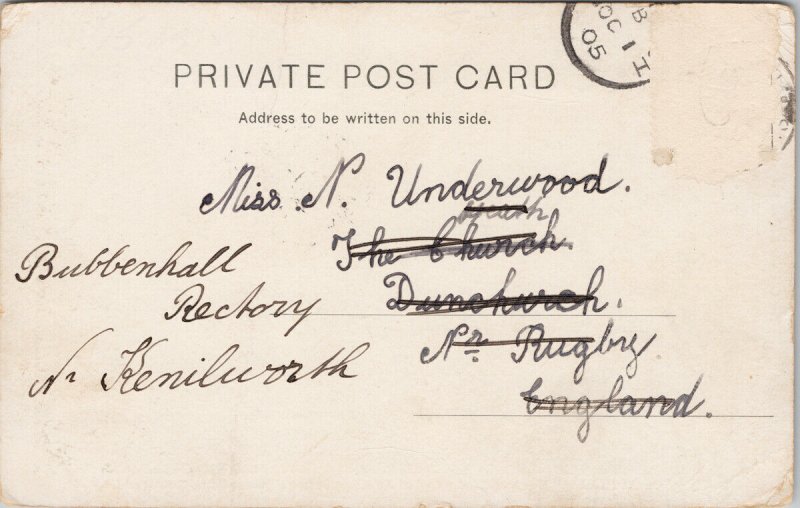 B
OC 1
05
PRIVATE POST CARD
Address to be written on this side.
Miss. N. Underwood.
Heath
The Church.
Dunchurch.
Nr. Rugby
England.
Bubbenhall
Rectory
Nr Kenilworth